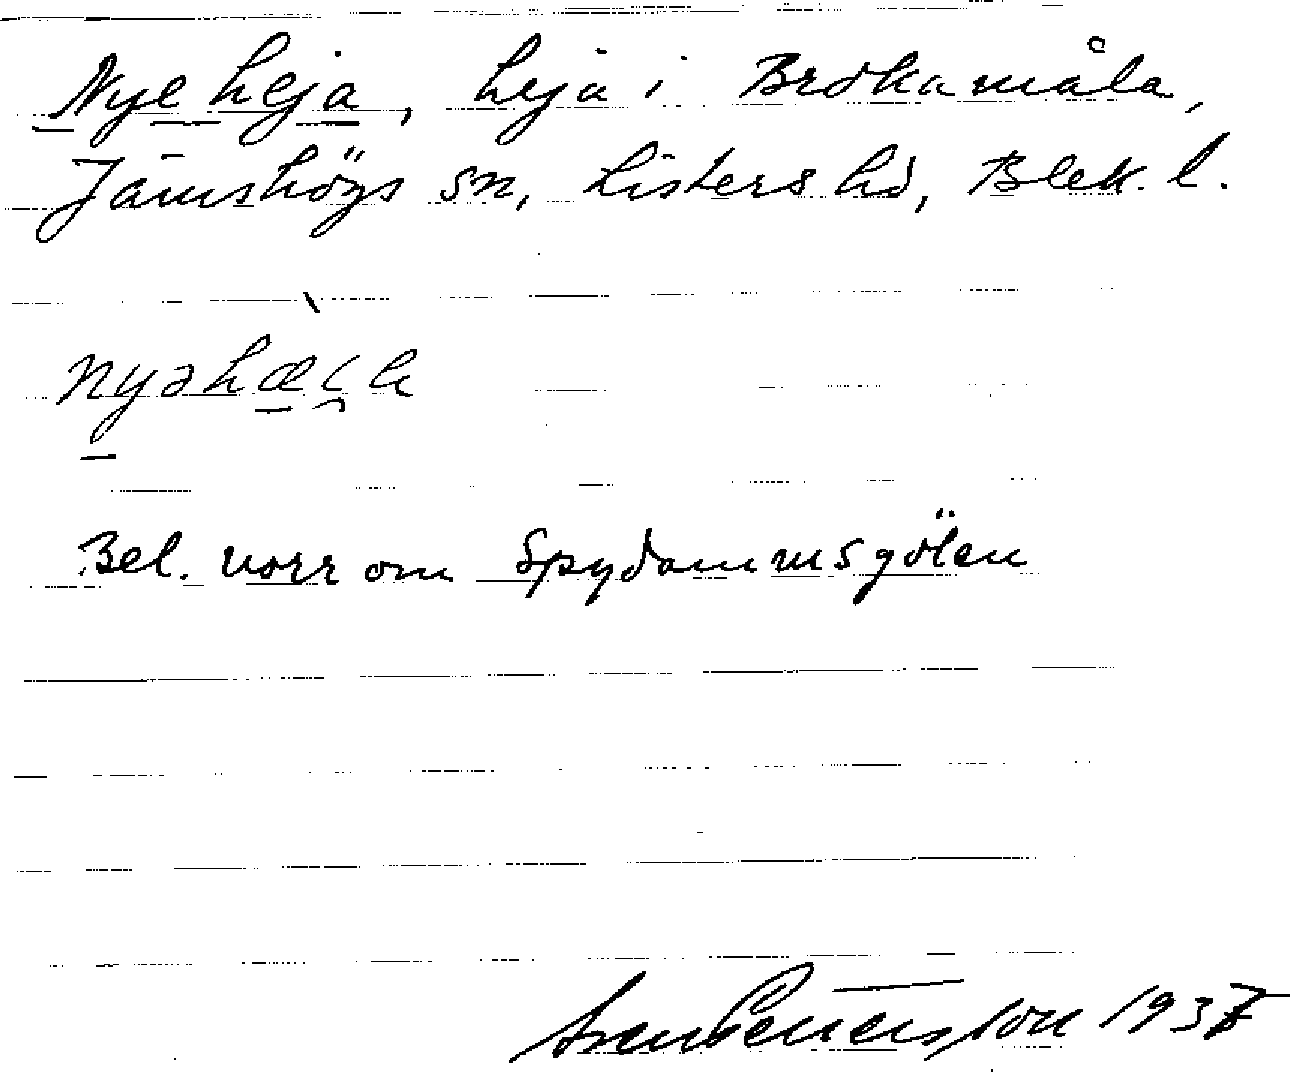 Nye heja, heja i Brokamåla,
Jämshögs sn, Listers hd, Blek. l.
nyəhæi̯a
Bel. norr om Spydammsgölen
Sven Petersson 1937